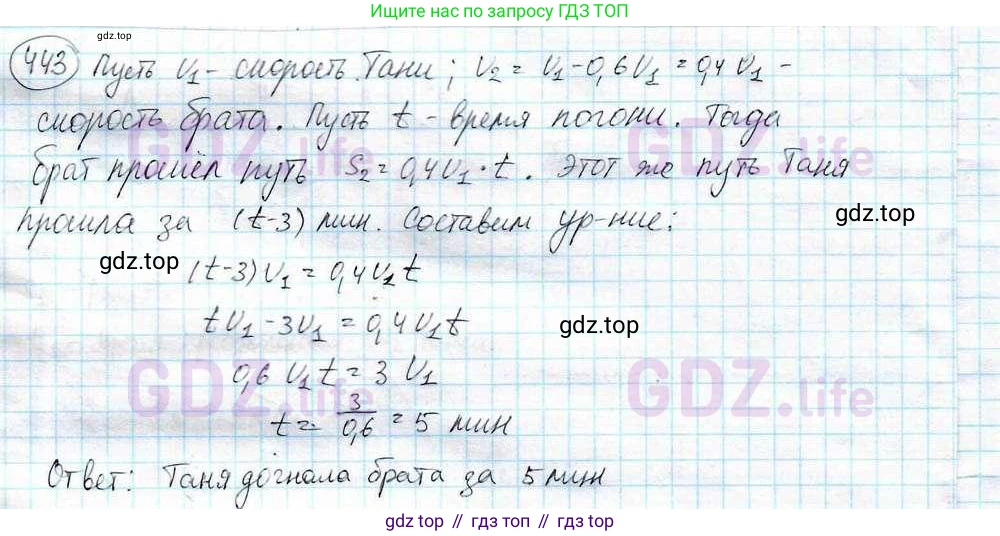 Ищите нас по запросу ГДЗ ТОП
gdz.top
443 Пусть V₁ - скорость Тани; V₂ = V₁ - 0,6V₁ = 0,4 V₁ -
скорость брата. Пусть t - время погони. Тогда
брат прошёл путь S₂ = 0,4V₁ · t. Этот же путь Таня
прошла за (t-3) мин. Составим ур-ние:
gdz.top
gdz.top
(t-3) V₁ = 0,4V₁t
tV₁ - 3V₁ = 0,4V₁t
gdz.top
0,6 V₁t = 3 V₁
t = 3/0,6 = 5 мин
Ответ: Таня догнала брата за 5 мин
GDZ.life
GDZ.life
GDZ.life
GDZ.life
gdz top // гдз топ // gdz top